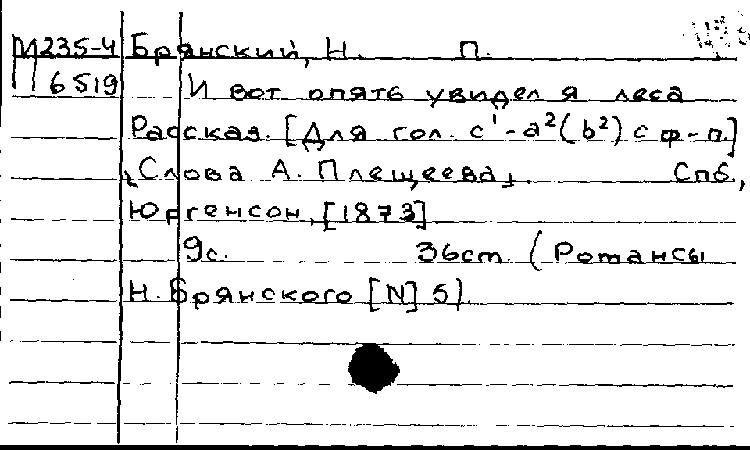 М235-4 Брянский, Н. П.
П 6519 И вот опять увидел я леса
Рассказ. [Для гол. c¹-a²(b²) с ф-п.]
„Слова А. Плещеева". Спб.,
Юргенсон, [1873]
9с. 36ст (Романсы
Н. Брянского [N] 5).